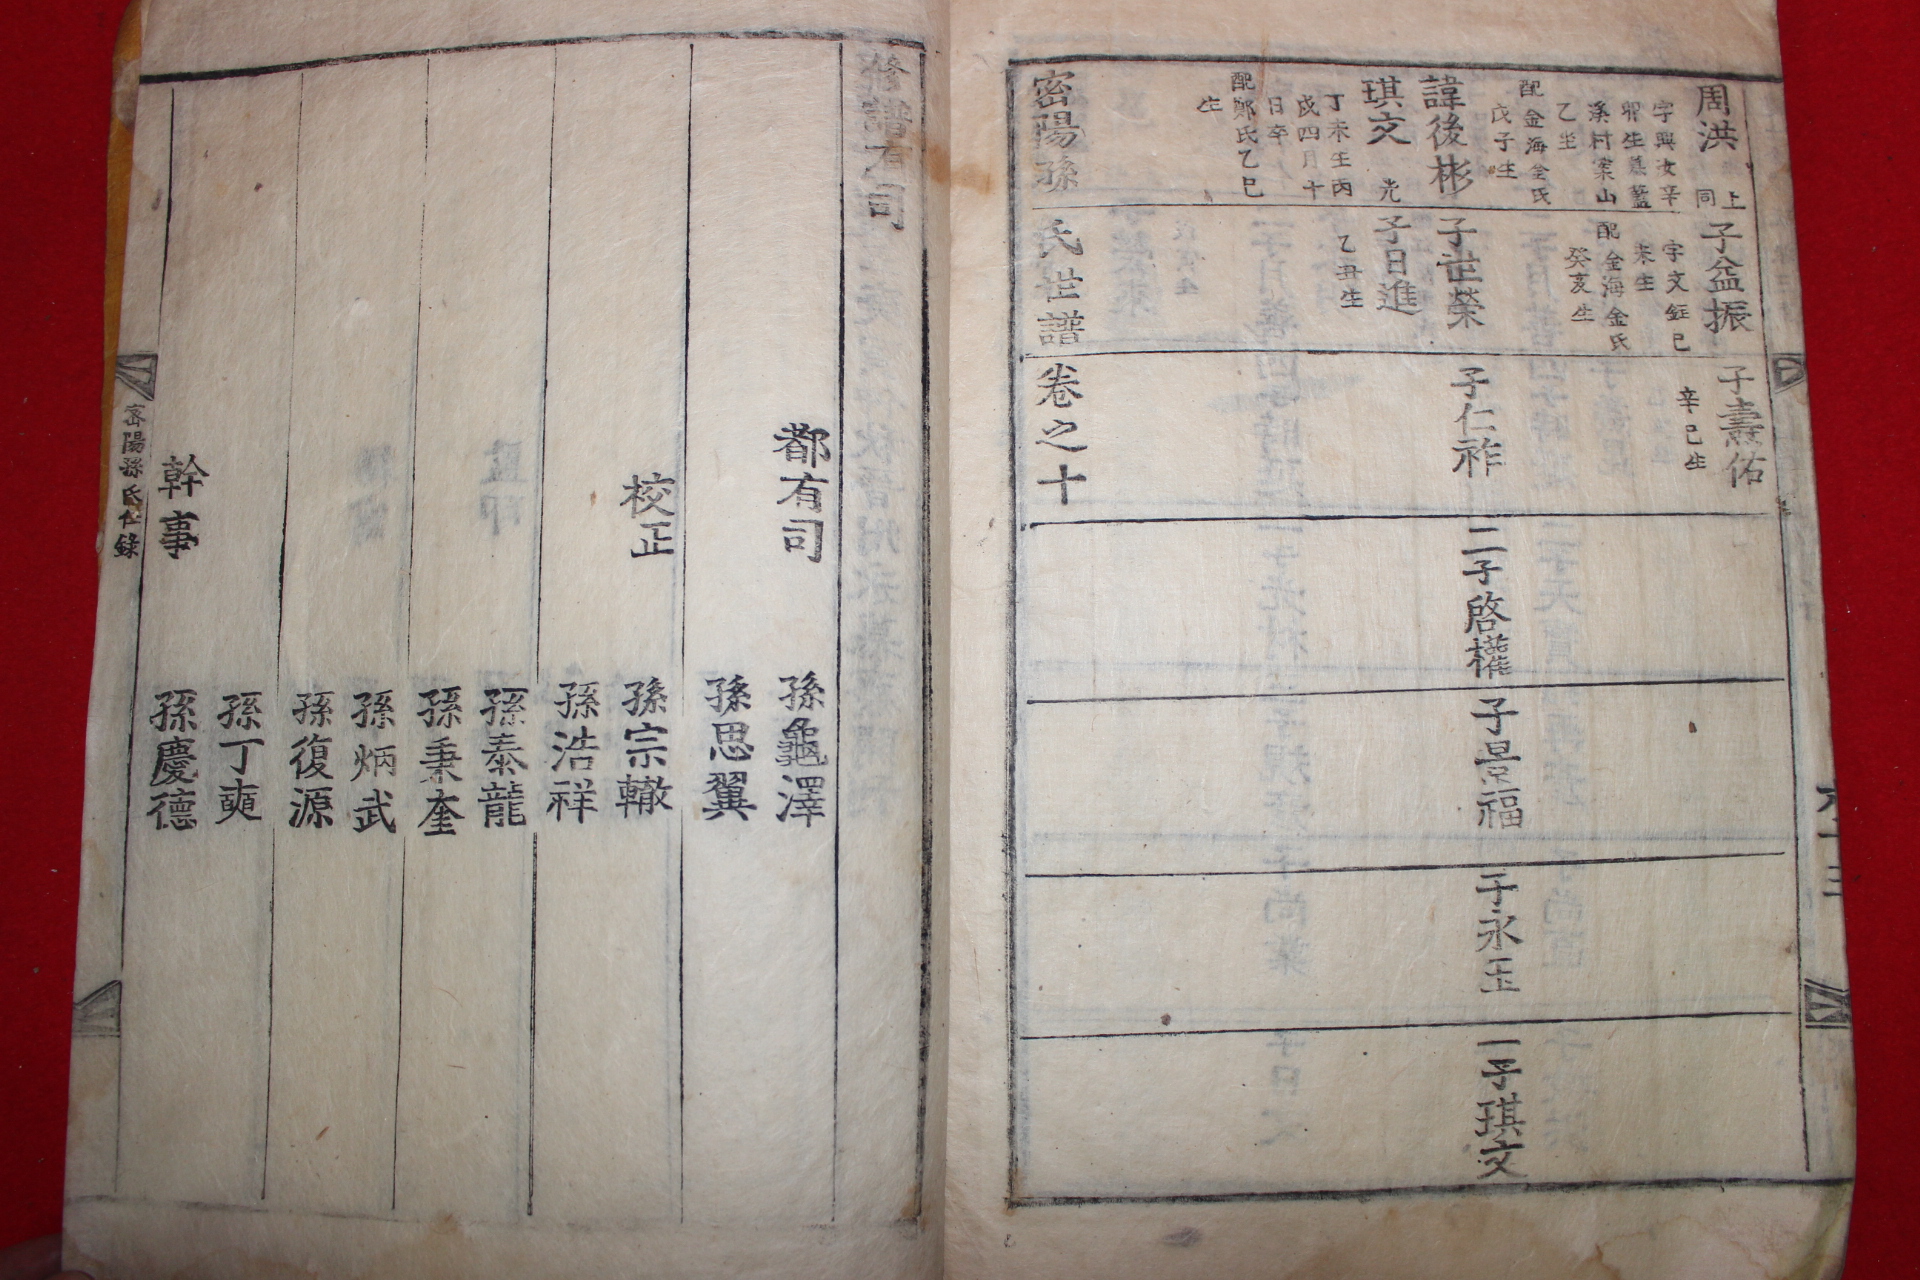 周洪
上
同
字興汝辛
卯生墓藍
溪村案山
乙坐
配金海金氏
戊子生
諱後彬
琪文
光
丁未生丙
戌四月十
日卒
配鄭氏乙巳
生
密陽孫氏世譜卷之十
子益振
字文鉦巳
未生
配金海金氏
癸亥生
子世榮
子日進
乙丑生
子壽佑
辛巳生
子仁祚
二子啓權
子景福
子永玉
一子琪文
修譜有司
都有司
孫龜澤
孫思翼
校正
孫宗轍
孫浩祥
孫泰龍
孫秉奎
孫炳武
孫復源
孫丁奭
幹事
孫慶德
密陽孫氏世錄